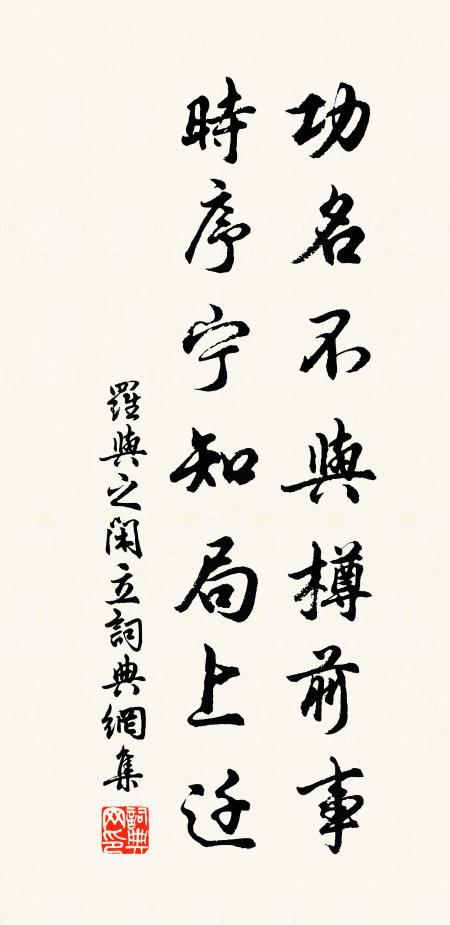 功名不與樽前事
時序宁知局上迁
羅與之閑立詞典網集
詞典網印